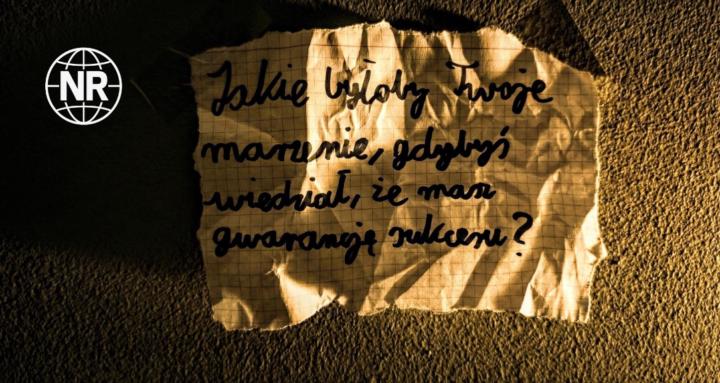 NR
Jakie byłoby Twoje
marzenie, gdybyś
wiedział, że masz
gwarancję sukcesu?